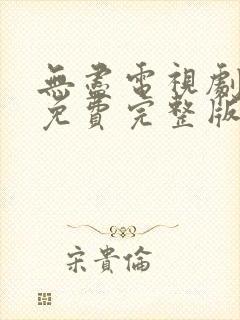 無盡電視劇
免費完整版
宋貴倫